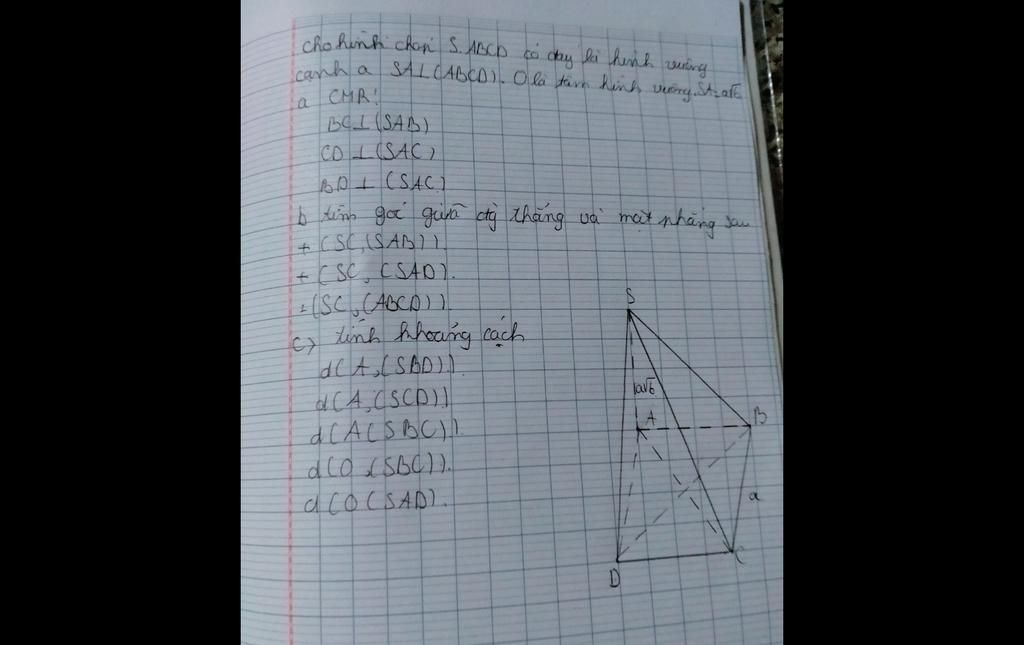 cho hình chóp S.ABCD có đáy là hình vuông
cạnh a SA⊥(ABCD). O là tâm hình vuông. SA=a√6
a CMR:
BC⊥(SAB)
CD⊥(SAC)
BD⊥(SAC)
b tìm góc giữa đg thẳng và mặt phẳng sau
+(SC,(SAB))
+(SC,(SAD).
+(SC,(ABCD)).
c) tính khoảng cách
d(A,(SBD))
d(A,(SCD))
d(A(SBC)).
d(O,(SBC)).
d(O(SAD).
S
a√6
A
B
a
C
D